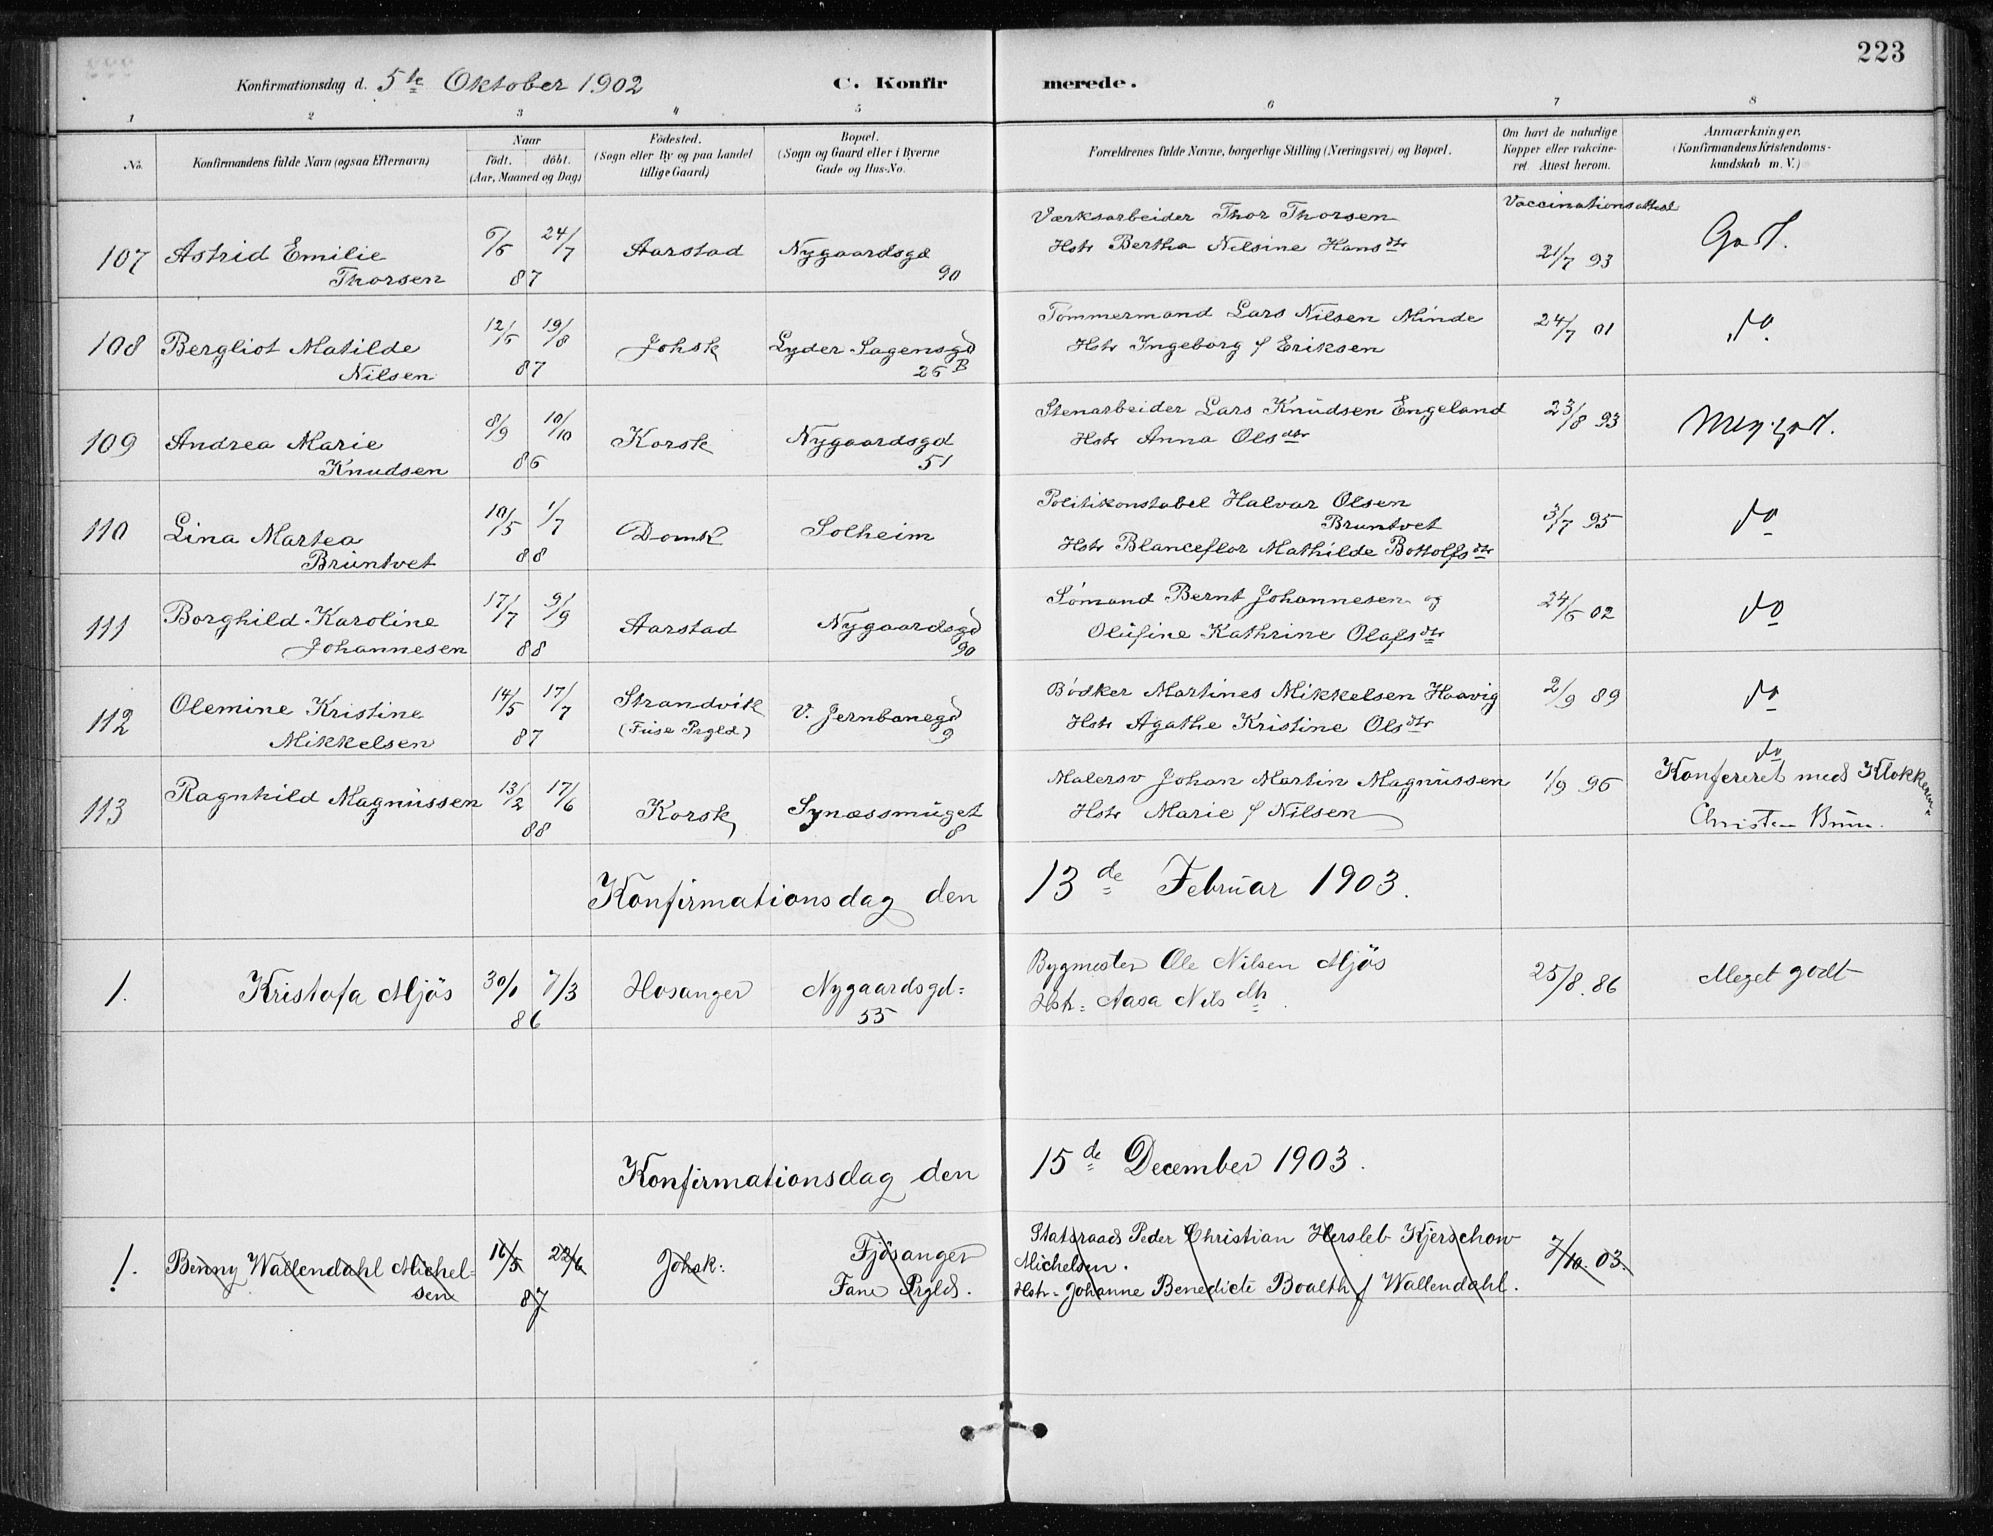 223
Konfirmationsdag d. 5te Oktober 1902 C. Konfirmerede.
1 2 3 4 5 6 7 8
No. Konfirmandens fulde Navn (ogsaa Efternavn) Naar födt. döbt. (Aar, Maaned og Dag) Födested. (Sogn eller By og paa Landet tillige Gaard) Bopæl. (Sogn og Gaard eller i Byerne Gade og Hus-No. Forældrenes fulde Navne, borgerlige Stilling (Næringsvei) og Bopæl. Om havt de naturlige Kopper eller vakcineret. Attest herom. Anmærkninger. (Konfirmandens Kristendomskundskab m. V.)
Vaccinationsattest
107 Astrid Emilie 6/5 24/7 Aarstad Nygaardsgd Værksarbeider Thor Thorsen 21/7 93 Godt.
Thorsen 87 90 Hstr Bertha Nilsine Hansdtr
108 Bergliot Matilde 12/5 19/8 Johsk Lyder Sagensgd Tömmermand Lars Nilsen Minde 24/7 01 do.
Nilsen 87 26 B Hstr Ingeborg f Eriksen
109 Andrea Marie 8/9 10/10 Korsk Nygaardsgd Stenarbeider Lars Knudsen Engeland 23/8 93 Meg. godt.
Knudsen 86 51 Hstr Anna Olsdtr
110 Lina Martea 10/5 1/7 Domk Solheim Politikonstabel Halvar Olsen 3/7 95 do
Bruntvet 88 Bruntvet
Hstr Blanceflor Mathilde Bottolfsdtr
111 Borghild Karoline 17/7 9/9 Aarstad Nygaardsgd Sömand Bernt Johannesen og 24/5 02 do
Johannesen 88 90 Olufine Kathrine Olafsdtr
112 Olemine Kristine 14/5 17/7 Strandvik V. Jernbanegd Bödker Martines Mikkelsen Haavig 2/9 89 do
Mikkelsen 87 (Fuse Prgld) 9 Hstr Agathe Kristine Olsdtr
113 Ragnhild Magnussen 13/2 17/6 Korsk Synæssmuget Malersv Johan Martin Magnussen 1/9 96 do
88 8 Hstr Marie f Nilsen Konfereret med Klokkeren.
Christen Brun.
Konfirmationsdag den 13de Februar 1903.
1. Kristofa Mjös 30/1 7/3 Hosanger Nygaardsgd: Bygmester Ole Nilsen Mjös 25/8. 86 Meget godt
86 55 Hstr. Aasa Nilsdtr.
Konfirmationsdag den 15de December 1903.
1. Benny Wallendahl Michel- 16/5 22/6 Johsk: Fjösanger Statsraad Peder Christian Hersleb Kjerschow 7/10. 03.
sen 87 Fane Prgld. Michelsen.
Hstr. Johanne Benedicte Boalth f Wallendahl.